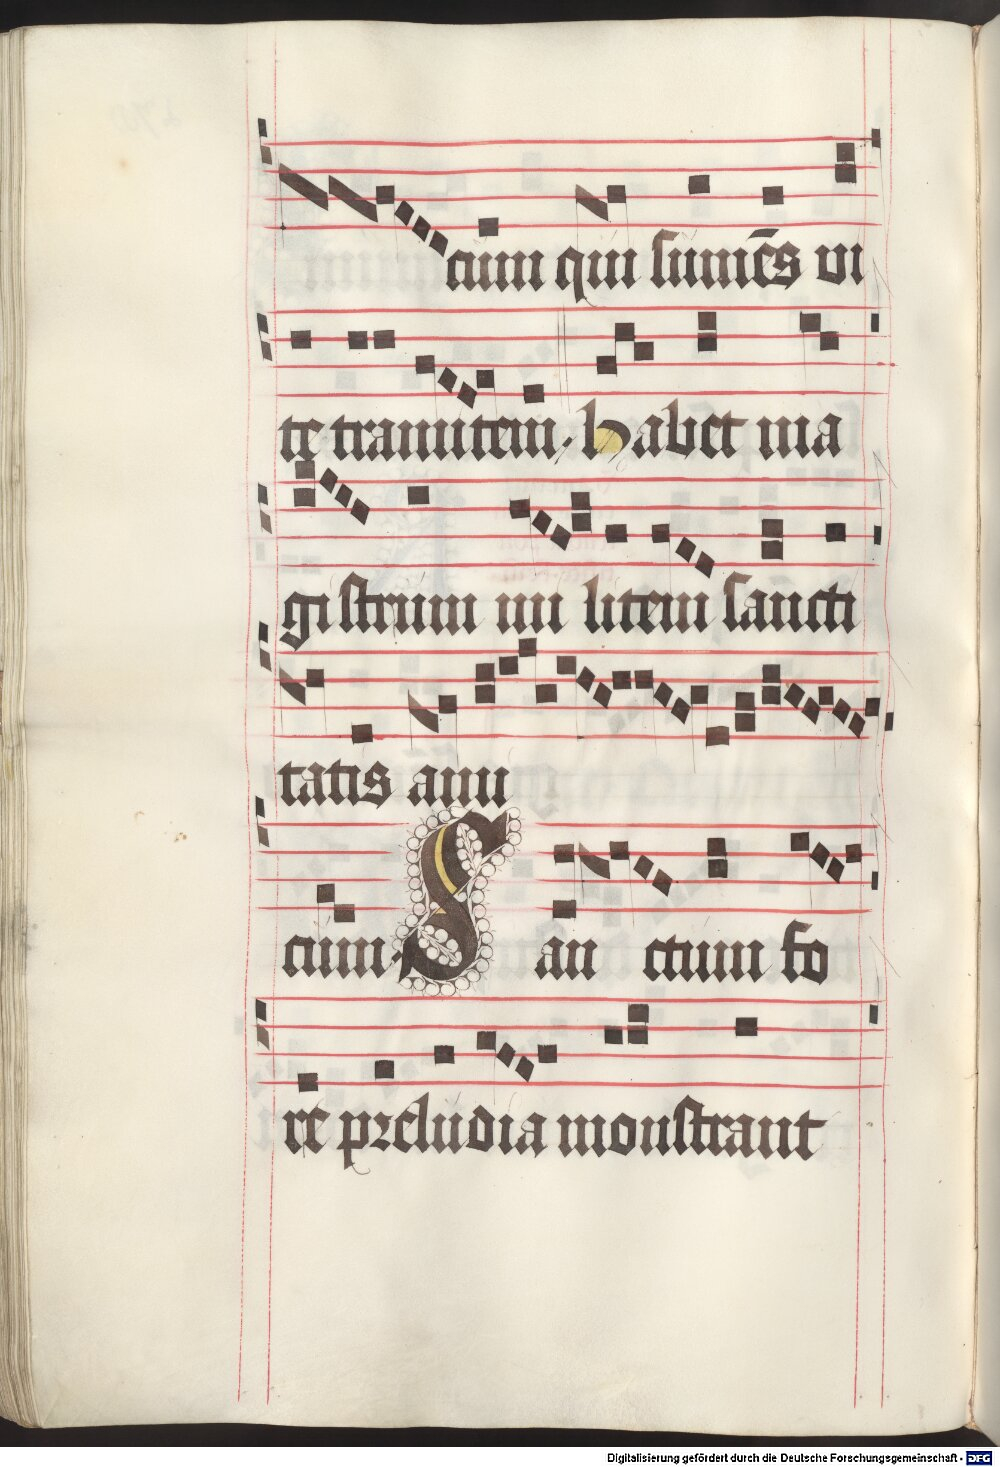 cum qui sum̄es vi
te tramitem. habet ma
gistrum mi litem sancti
tatis ami
cum. San ctum fo
re preludia monstrant
Digitalisierung gefördert durch die Deutsche Forschungsgemeinschaft - DFG